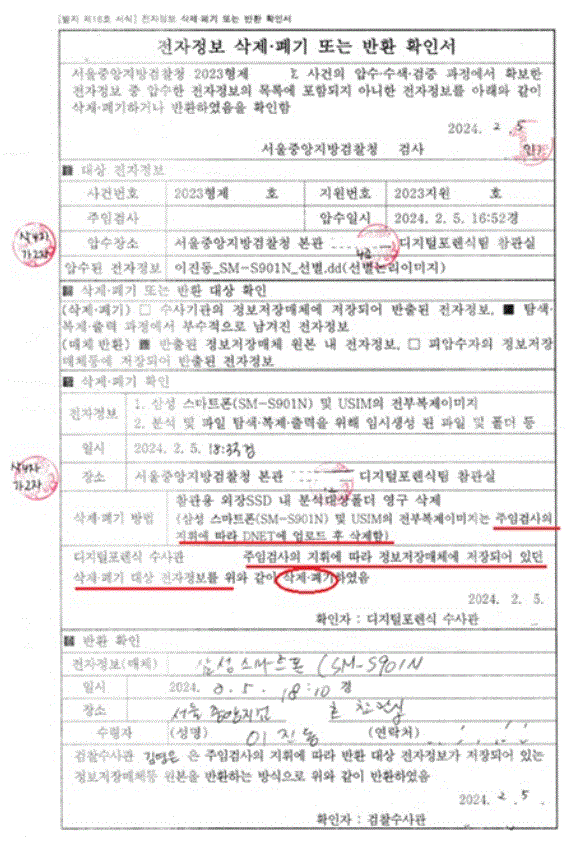 [별지 제16호 서식] 전자정보 삭제·폐기 또는 반환 확인서
전자정보 삭제·폐기 또는 반환 확인서
서울중앙지방검찰청 2023형제 사건의 압수·수색·검증 과정에서 확보한
전자정보 중 압수한 전자정보의 목록에 포함되지 아니한 전자정보를 아래와 같이
삭제·폐기하거나 반환하였음을 확인함
2024. 2. 5
서울중앙지방검찰청 검사 인
■ 대상 전자정보
사건번호 2023형제 호 지원번호 2023지원 호
주임검사 압수일시 2024. 2. 5. 16:52경
삭4자
가2자
압수장소 서울중앙지방검찰청 본관 디지털포렌식팀 참관실
압수된 전자정보 이진동_SM-S901N_선별.dd(선별논리이미지)
■ 삭제·폐기 또는 반환 대상 확인
(삭제·폐기) □ 수사기관의 정보저장매체에 저장되어 반출된 전자정보, ■ 탐색·
복제·출력 과정에서 부수적으로 남겨진 전자정보
(매체 반환) ■ 반출된 정보저장매체 원본 내 전자정보, □ 피압수자의 정보저장
매체등에 저장되어 반출된 전자정보
■ 삭제·폐기 확인
전자정보 1. 삼성 스마트폰(SM-S901N) 및 USIM의 전부복제이미지
2. 분석 및 파일 탐색·복제·출력을 위해 임시생성 된 파일 및 폴더 등
일시 2024. 2. 5. 18:33경
삭4자
가2자
장소 서울중앙지방검찰청 본관 디지털포렌식팀 참관실
삭제·폐기 방법 참관용 외장SSD 내 분석대상폴더 영구 삭제
(삼성 스마트폰(SM-S901N) 및 USIM의 전부복제이미지는 주임검사의
지휘에 따라 DNET에 업로드 후 삭제함)
디지털포렌식 수사관 주임검사의 지휘에 따라 정보저장매체에 저장되어 있던
삭제·폐기 대상 전자정보를 위와 같이 삭제·폐기하였음
2024. 2. 5.
확인자 : 디지털포렌식 수사관
■ 반환 확인
전자정보(매체) 삼성 스마트폰 (SM-S901N
일시 2024. 2. 5. 18:10 경
장소 서울중앙지검 참관실
수령자 (성명) 이진동 (연락처)
검찰수사관 김영은 은 주임검사의 지휘에 따라 반환 대상 전자정보가 저장되어 있는
정보저장매체등 원본을 반환하는 방식으로 위와 같이 반환하였음
2024. 2. 5.
확인자 : 검찰수사관